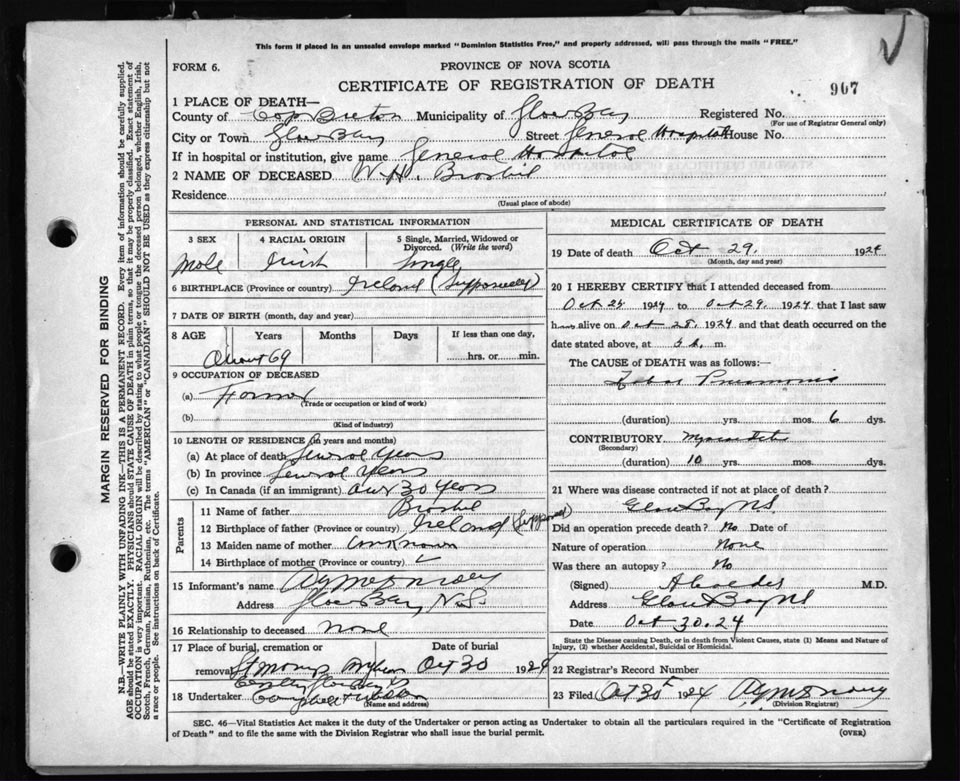 This form if placed in an unsealed envelope marked "Dominion Statistics Free," and properly addressed, will pass through the mails "FREE."
FORM 6.
PROVINCE OF NOVA SCOTIA
CERTIFICATE OF REGISTRATION OF DEATH
907
1 PLACE OF DEATH—
County of Cape Breton Municipality of Glace Bay Registered No.
(For use of Registrar General only)
City or Town Glace Bay Street General Hospital House No.
If in hospital or institution, give name General Hospital
2 NAME OF DECEASED W. H.
Residence
(Usual place of abode)
PERSONAL AND STATISTICAL INFORMATION
3 SEX
Male
4 RACIAL ORIGIN
Irish
5 Single, Married, Widowed or Divorced. (Write the word)
Single
6 BIRTHPLACE (Province or country) Ireland (Supposedly)
7 DATE OF BIRTH (month, day and year)
8 AGE Years Months Days If less than one day,
About 69 hrs. or min.
9 OCCUPATION OF DECEASED
(a) Farmer
(Trade or occupation or kind of work)
(b)
(Kind of industry)
10 LENGTH OF RESIDENCE (in years and months)
(a) At place of death Several Years
(b) In province Several Years
(c) In Canada (if an immigrant) Over 30 Years
Parents
11 Name of father
12 Birthplace of father (Province or country) Ireland (Supposed)
13 Maiden name of mother Unknown
14 Birthplace of mother (Province or country)
15 Informant's name
Address Glace Bay N.S.
16 Relationship to deceased None
17 Place of burial, cremation or Date of burial
removal St Marys Oct 30 1924
18 Undertaker
(Name and address)
MEDICAL CERTIFICATE OF DEATH
19 Date of death Oct 29. 1924
(Month, day and year)
20 I HEREBY CERTIFY that I attended deceased from
Oct 24 1924 to Oct 29. 1924 that I last saw
him alive on Oct 28. 1924 and that death occurred on
date stated above, at m.
The CAUSE of DEATH was as follows:—
Lobar Pneumonia
(duration) yrs. mos. 6 dys.
CONTRIBUTORY
(Secondary)
(duration) 10 yrs. mos. dys.
21 Where was disease contracted if not at place of death?
Glace Bay NS.
Did an operation precede death? No Date of
Nature of operation None
Was there an autopsy? No
(Signed) M.D.
Address Glace Bay NS
Date Oct 30. 24
State the Disease causing Death, or in death from Violent Causes, state (1) Means and Nature of Injury, (2) whether Accidental, Suicidal or Homicidal.
22 Registrar's Record Number
23 Filed Oct 30 1924
(Division Registrar)
SEC. 46—Vital Statistics Act makes it the duty of the Undertaker or person acting as Undertaker to obtain all the particulars required in the "Certificate of Registration
of Death" and to file the same with the Division Registrar who shall issue the burial permit.
(OVER)
MARGIN RESERVED FOR BINDING
N.B.—WRITE PLAINLY WITH UNFADING INK—THIS IS A PERMANENT RECORD. Every item of information should be carefully supplied.
AGE should be stated EXACTLY. PHYSICIANS should STATE CAUSE OF DEATH in plain terms, so that it may be properly classified. Exact statement of
OCCUPATION is very important. RACIAL ORIGIN will be described by stating to what people or tongue the deceased person belonged, whether English, Irish,
Scotch, French, German, Russian, Ruthenian, etc. The terms "AMERICAN" or "CANADIAN" SHOULD NOT BE USED as they express citizenship but not
a race or people. See instructions on back of Certificate.